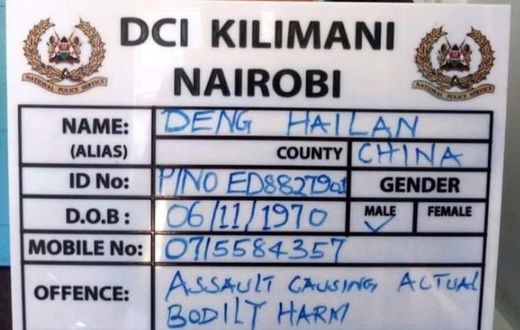 DCI KILIMANI
NAIROBI
NATIONAL POLICE SERVICE
NATIONAL POLICE SERVICE
NAME: DENG HAILAN
(ALIAS) COUNTY CHINA
ID No: P/NO ED8827901 GENDER
D.O.B: 06/11/1970 MALE ✓ FEMALE
MOBILE No: 0715584357
OFFENCE: ASSAULT CAUSING ACTUAL
BODILY HARM